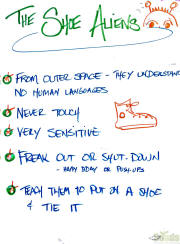 THE SHOE ALIENS
FROM OUTER SPACE - THEY UNDERSTAND
NO HUMAN LANGUAGES
NEVER TOUCH
VERY SENSITIVE
FREAK OUT OR SHUT-DOWN
- HAPPY BDAY OR PUSH-UPS
TEACH THEM TO PUT ON A SHOE
& TIE IT